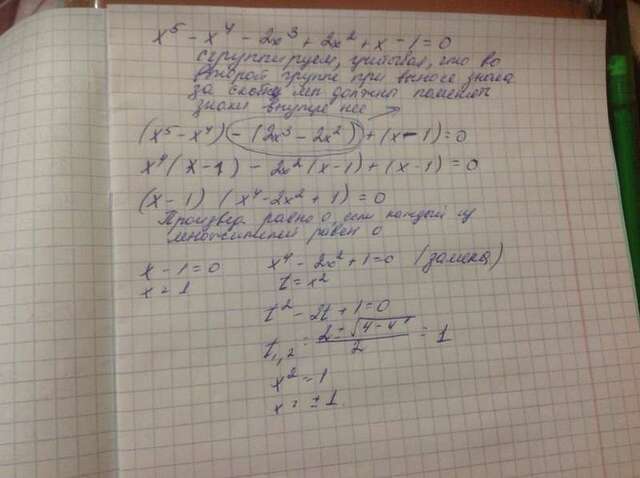 x⁵ - x⁴ - 2x³ + 2x² + x - 1 = 0
сгруппируем, учитывая, что во
второй группе при выносе знака
за скобку мы должны поменять
знаки внутри нее
(x⁵ - x⁴) - (2x³ - 2x²) + (x - 1) = 0
x⁴(x - 1) - 2x²(x - 1) + (x - 1) = 0
(x - 1) (x⁴ - 2x² + 1) = 0
Произвед. равно 0, если каждый из
множителей равен 0
x - 1 = 0 x⁴ - 2x² + 1 = 0 (замена)
x = 1 t = x²
t² - 2t + 1 = 0
t₁,₂ = (2 ± √(4 - 4))/2 = 1
x² = 1
x = ± 1